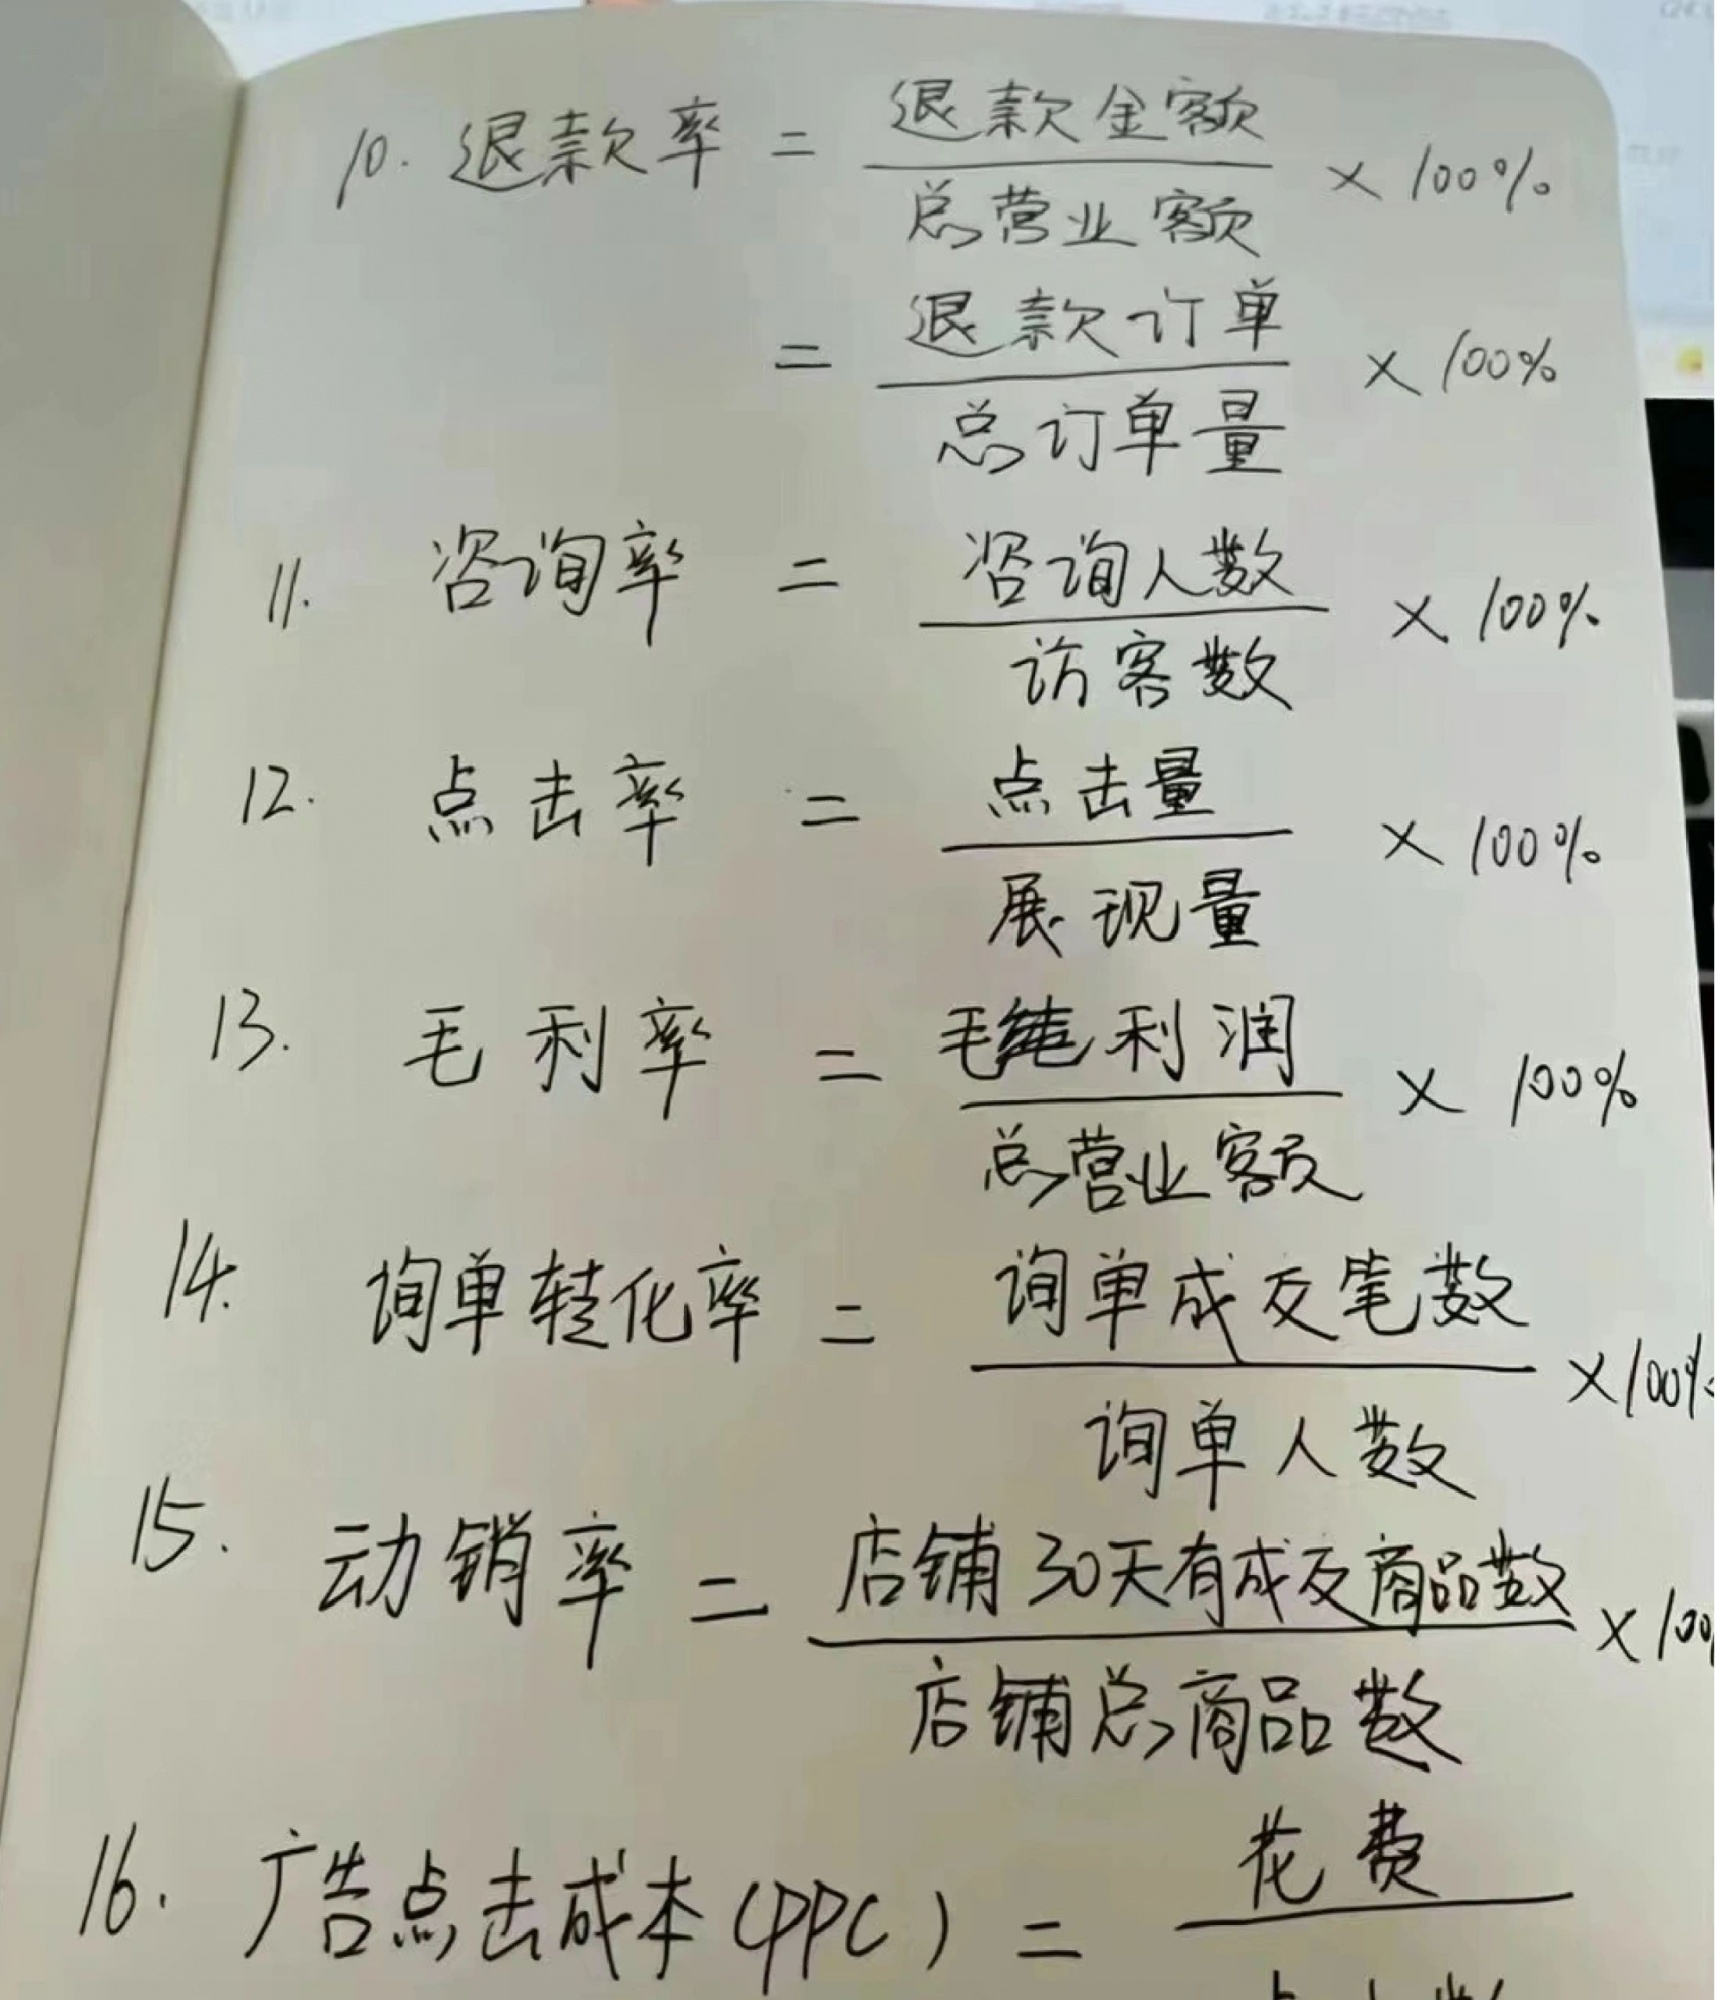 10. 退款率 = 退款金额 / 总营业额 × 100%
= 退款订单 / 总订单量 × 100%
11. 咨询率 = 咨询人数 / 访客数 × 100%
12. 点击率 = 点击量 / 展现量 × 100%
13. 毛利率 = 毛利润 / 总营业额 × 100%
14. 询单转化率 = 询单成交笔数 / 询单人数 × 100%
15. 动销率 = 店铺30天有成交商品数 / 店铺总商品数 × 100
16. 广告点击成本(PPC) = 花费